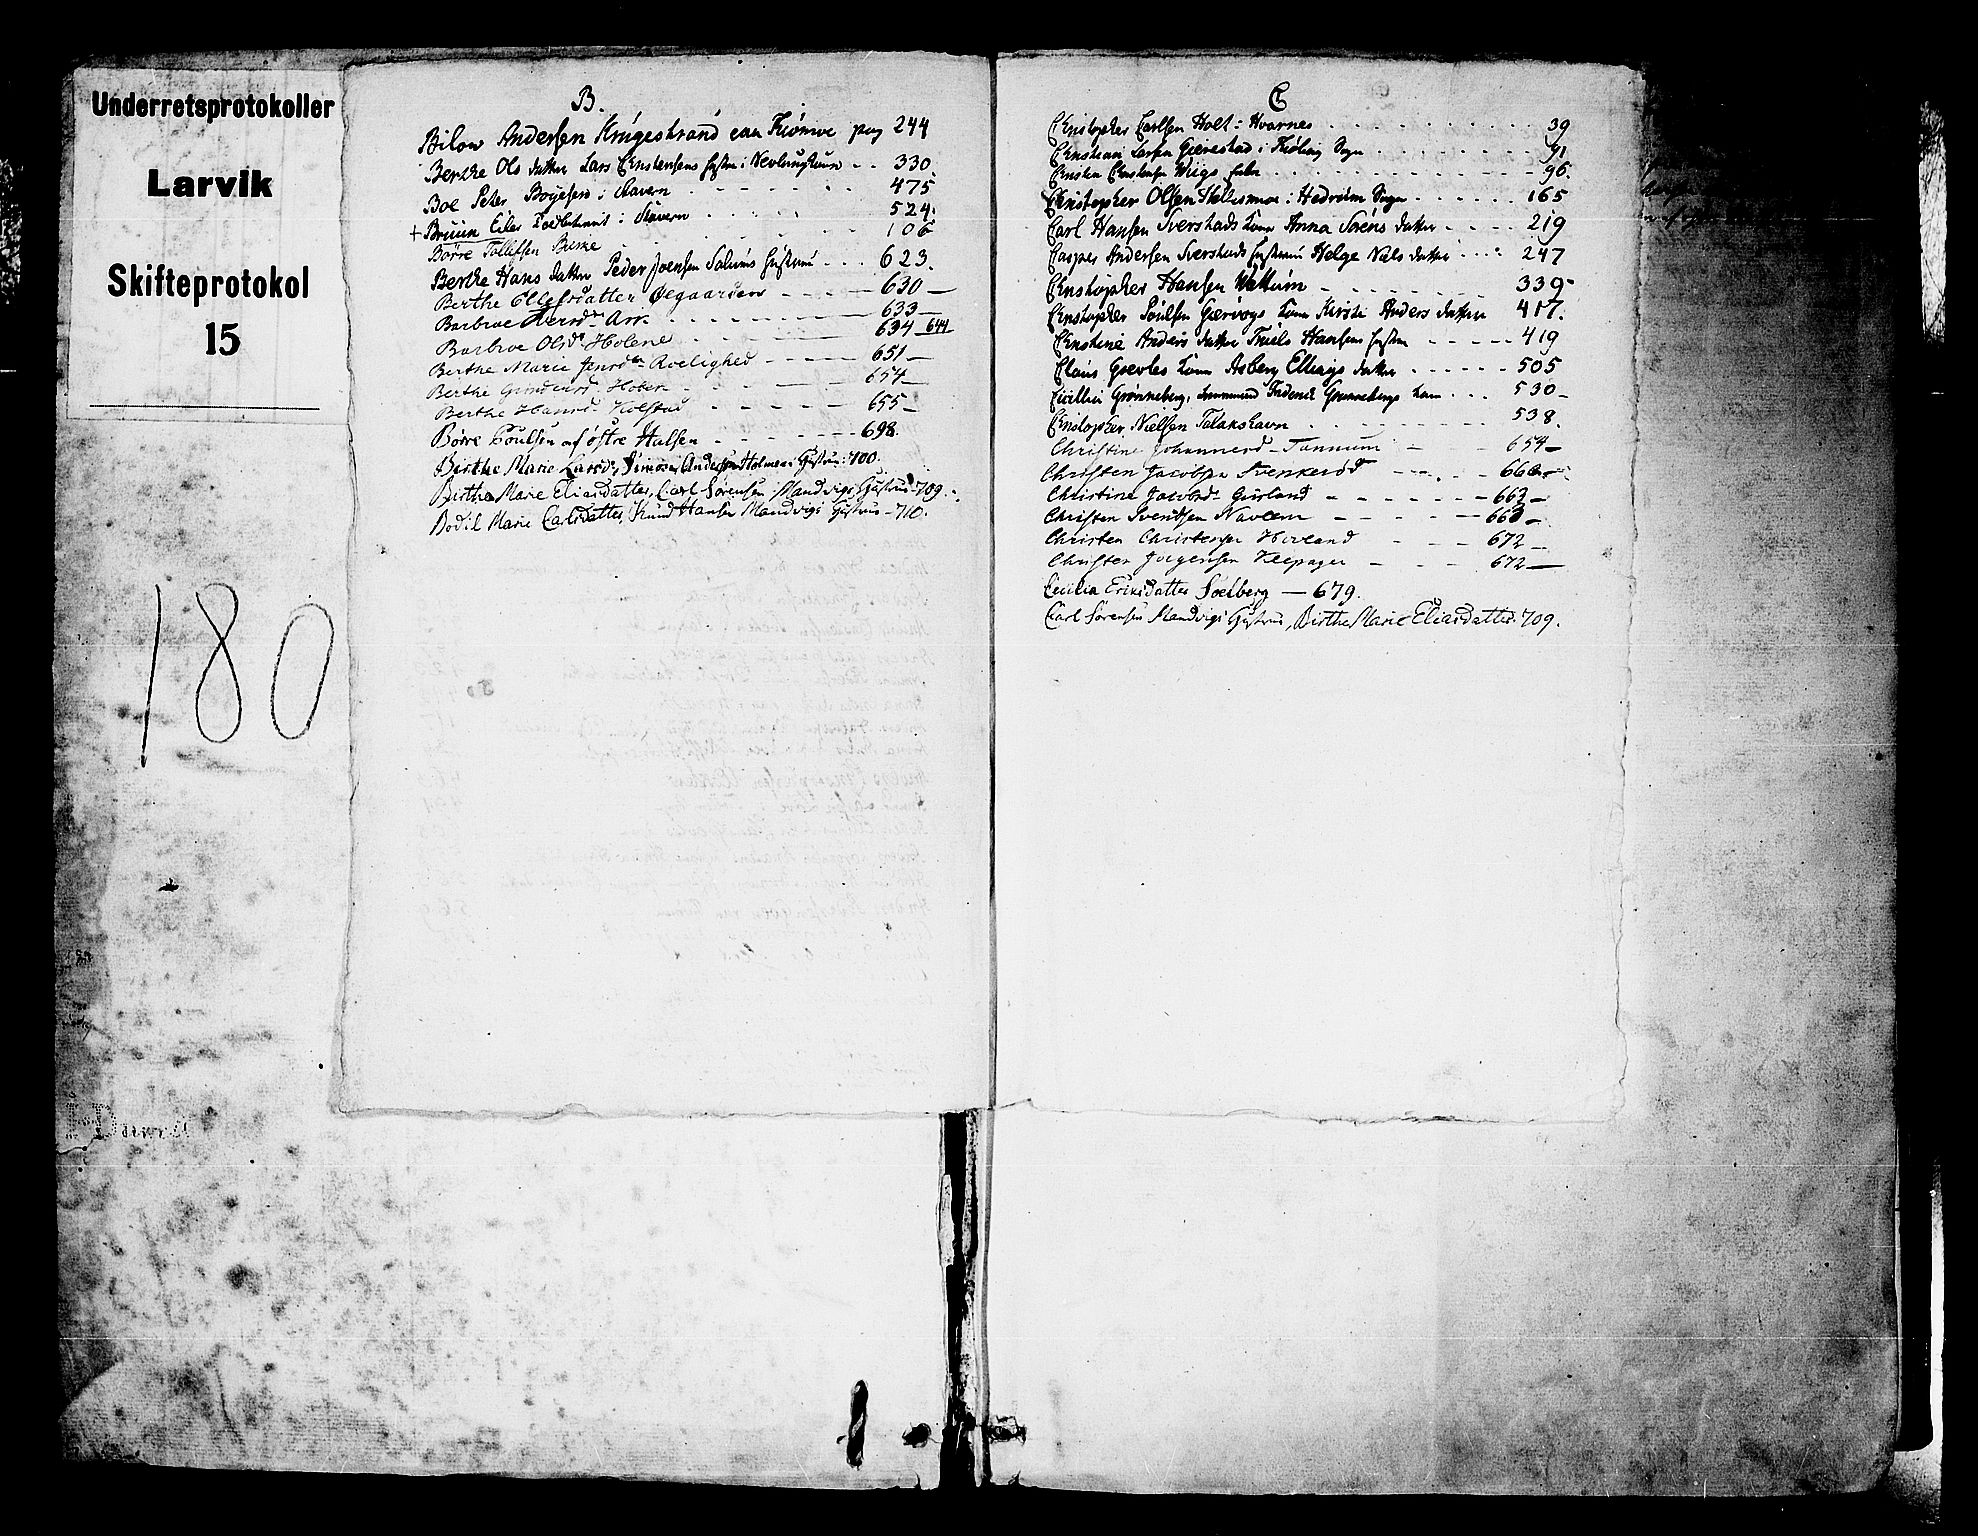 Underretsprotokoller
Larvik
Skifteprotokol
15
180
B.
Bilow Andersen Krugestrand paa Tiømoe pag 244
Berthe Ols datter Lars Christensens hustru i Nevlunghavn 330
Boe Peter Boyesen i Stavern 475
+ Bruun Eiler i Stavern 524
Børre Tollefsen Burke 106
Berthe Hans datter Peder Joensen Solums hustru 623.
Berthe Ellefsdatter Øegaarden 630
Barbroe Iversdr Ask 633
Barbroe Olsdr Holene 634 644
Berthe Marie Jensdr Roelighed 651
Berthe Gundersd Holen 654
Berthe Hansd. Kolstad 655
Børre Poulsen af østre Halsen 698.
Birthe Marie Larsdr, Simon Andersen Holmene Hustrue 700.
Birthe Marie Eliasdatter, Carl Sørensen Mandvigs Hustrue 709.
Bodil Marie Carlsdatter, Knud Hansen Mandvigs Hustrue 710.
C
Christopher Carlsen Holt i Hvarnes 39
Christian Larsen Gierestad i Tiøling Sogn 91
Christen Christensen Wiigs 96.
Christopher Olsen i Hedrum Sogn 165
Carl Hansen Sverstads Kone Anna Sørens datter 219
Casper Andersen Sverstads hustru Helge Niels datter 247
Christopher Hansen 339
Christopher Poulsen Kone Kirsti Anders datter 417.
Christine Anders datter Truels Hansens hustru 419
Claus Grevles Kone Asberg Ellings datter 505
Cicillia Grønneberg, Friderich Grønnebergs Kone 530
Christopher Nielsen Talakshavn 538.
Christine Johannesd. Tanum 654
Christen Jacobsen Svenkerød 660
Christine Jacobsdr Gurland 662
Christen Svendsen Navlem 668
Christen Christensen Hovland 672
Christen Jørgensen Klepager 672
Cecilia Eriksdatter Soelberg 679.
Carl Sørensen Mandvigs Hustrue, Birthe Marie Eliasdatter 709.